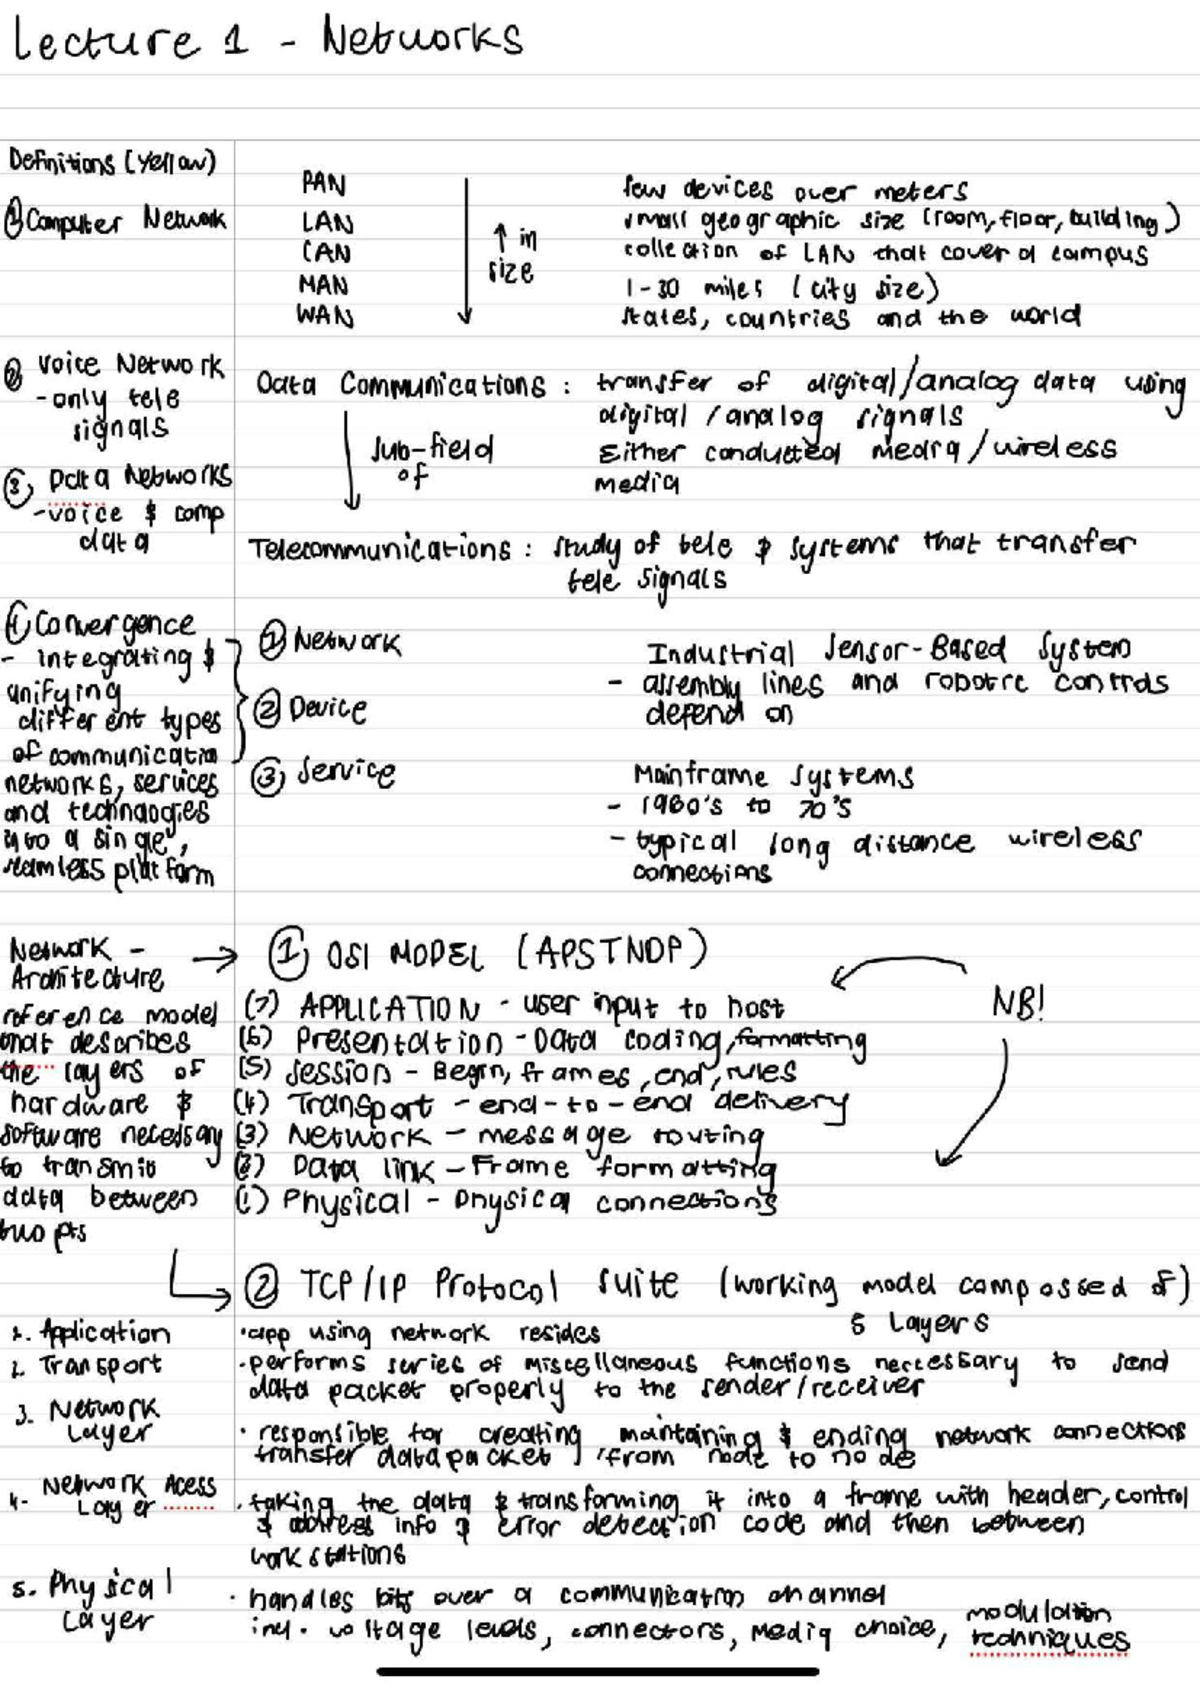 Lecture 1 - Networks
Definitions (Yellow)
① Computer Network
PAN
LAN
CAN
MAN
WAN
↑ in
size
few devices over meters
small geographic size (room, floor, building)
collection of LAN that cover a campus
1-30 miles (city size)
states, countries and the world
② Voice Network
- only tele
signals
③ Data Networks
- voice & comp
data
Data Communications : transfer of digital/analog data using
digital/analog signals
Either conducted media/wireless
media
sub-field
of
Telecommunications : study of tele & systems that transfer
tele signals
① Convergence
- integrating &
unifying
different types
of communication
networks, services
and technologies
into a single,
seamless platform
① Network
② Device
③ Service
Industrial Sensor-Based System
- assembly lines and robotic controls
depend on
Mainframe systems
- 1960's to 70's
- typical long distance wireless
connections
Network -
Architecture
reference model
that describes
the layers of
hardware &
software necessary
to transmit
data between
two pts
① OSI MODEL (APSTNDP)
(7) APPLICATION - user input to host
(6) Presentation - Data coding, formatting
(5) Session - Begin, frames, end, rules
(4) Transport - end-to-end delivery
(3) Network - message routing
(2) Data link - Frame formatting
(1) Physical - physical connections
NB!
② TCP/IP Protocol suite (working model compossed of)
5 Layers
1. Application
· app using network resides
2. Transport
· performs series of miscellaneous functions neccessary to send
data packet properly to the sender/receiver
3. Network
Layer
· responsible for creating maintaining & ending network connections
transfer data packet, from node to node
4. Network Acess
Layer
· taking the data & transforming it into a frame with header, control
& address info & error detection code and then between
workstations
5. Physical
Layer
· handles bits over a communication channel
incl. voltage levels, connectors, media choice, modulation
techniques